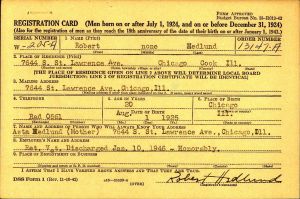 FORM APPROVED
REGISTRATION CARD (Men born on or after July 1, 1924, and on or before December 31, 1924)
(Also for the registration of men as they reach the 18th anniversary of the date of their birth on or after January 1, 1943.)
SERIAL NUMBER 1. NAME (Print) ORDER NUMBER
W-205-A Robert none Hedlund 13147-A
2. PLACE OF RESIDENCE (Print)
7644 S. St. Lawrence Ave. Chicago Cook Ill.
[THE PLACE OF RESIDENCE GIVEN ON LINE 2 ABOVE WILL DETERMINE LOCAL BOARD
JURISDICTION; LINE 2 OF REGISTRATION CERTIFICATE WILL BE IDENTICAL]
3. MAILING ADDRESS
7644 St. Lawrence Ave., Chicago, Ill.
4. TELEPHONE 5. AGE IN YEARS 6. PLACE OF BIRTH
20 Chicago
DATE OF BIRTH
Rad 0561 Aug. 1 1925 Ill.
7. NAME AND ADDRESS OF PERSON WHO WILL ALWAYS KNOW YOUR ADDRESS
Asta Hedlund (Mother) 7644 S. St. Lawrence Ave., Chicago, Ill.
8. EMPLOYER'S NAME AND ADDRESS
Discharged Jan. 10, 1946 - Honorably.
9. PLACE OF EMPLOYMENT OR BUSINESS
I AFFIRM THAT I HAVE VERIFIED ABOVE ANSWERS AND THAT THEY ARE TRUE.
DSS Form 1 (OVER) Robert Hedlund